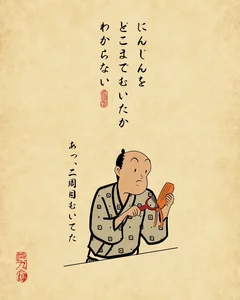 にんじんを
どこまでむいたか
わからない
あっ、二周目むいてた